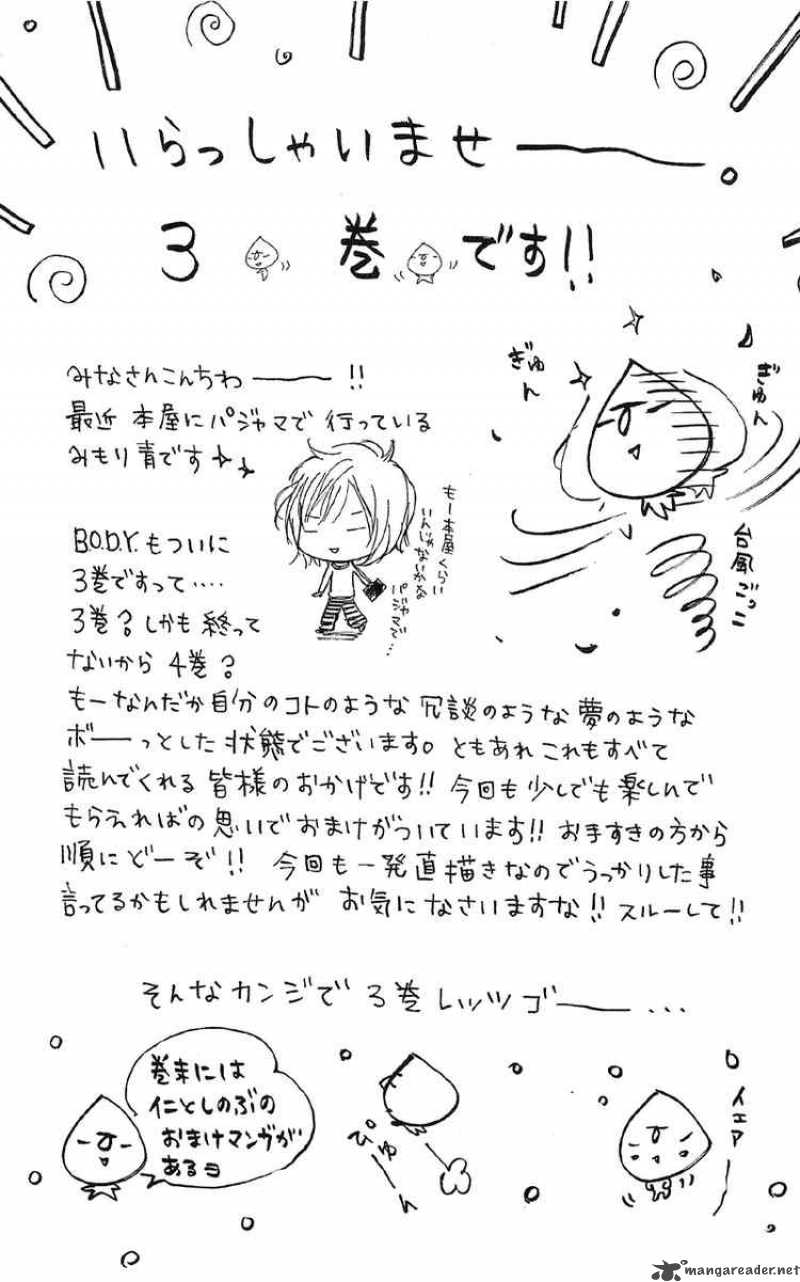 いらっしゃいませー。
3巻です!!
みなさんこんちわー!!
最近 本屋にパジャマで 行っている
みもり青です
もー本屋くらい
いんじゃないかな
パジャマで…
ぎゅん
ぎゅん
台風ごっこ
B.O.D.Y.もついに
3巻ですって‥‥
3巻?しかも 終って
ないから 4巻?
もーなんだか自分のコトのような 冗談のような夢のような
ボーっとした 状態でございます。ともあれ これもすべて
読んでくれる 皆様のおかげです!! 今回も 少しでも 楽しんで
もらえればの 思いで おまけがついています!! お手すきの方から
順に どーぞ!! 今回も 一発直描きなので うっかりした事
言ってるかもしれませんが お気に なさいますな!! スルーして!!
そんなカンジで 3巻 レッツゴー…
巻末には
仁としのぶの
おまけマンガが
あるヨ
ぴゅーん
イェアー
mangareader.net